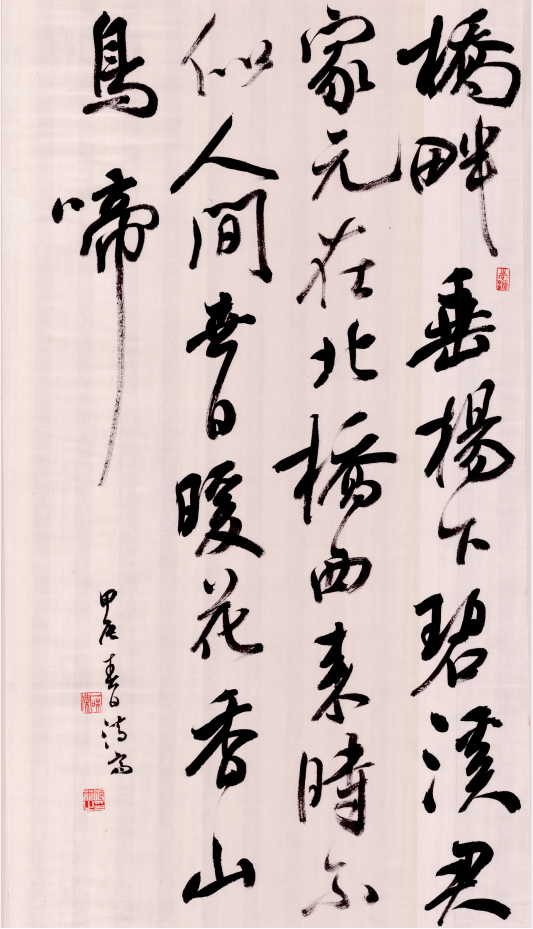 橋畔垂楊下碧溪君
家元在北橋西來時不
似人間世日暖花香山
鳥啼
甲辰春日